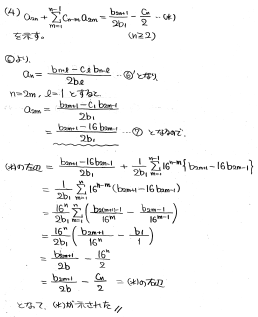 (4) a₂ₙ + Σ_{m=1}^{n-1} cₙ₋ₘ a₂ₘ = b₂ₙ₊₁/2b₁ - cₙ/2 …(*)
を示す。 (n≧2)
⑥より,
aₙ = (bₙ₊ℓ - cℓ bₙ₋ℓ)/2bℓ …⑥ となり,
n=2m, ℓ=1 とすると
a₂ₘ = (b₂ₘ₊₁ - c₁ b₂ₘ₋₁)/2b₁
= (b₂ₘ₊₁ - 16 b₂ₘ₋₁)/2b₁ …⑦ となるので,
(*)の左辺 = (b₂ₙ₊₁ - 16b₂ₙ₋₁)/2b₁ + 1/2b₁ Σ_{m=1}^{n-1} 16ⁿ⁻ᵐ {b₂ₘ₊₁ - 16b₂ₘ₋₁}
= 1/2b₁ Σ_{m=1}^{n} 16ⁿ⁻ᵐ (b₂ₘ₊₁ - 16b₂ₘ₋₁)
= 16ⁿ/2b₁ Σ_{m=1}^{n} (b₂ₘ₊₁/16ᵐ - b₂ₘ₋₁/16ᵐ⁻¹)
= 16ⁿ/2b₁ (b₂ₙ₊₁/16ⁿ - b₁/1)
= b₂ₙ₊₁/2b - 16ⁿ/2
= b₂ₙ₊₁/2b - cₙ/2 = (*)の右辺
となって, (*)が示された //